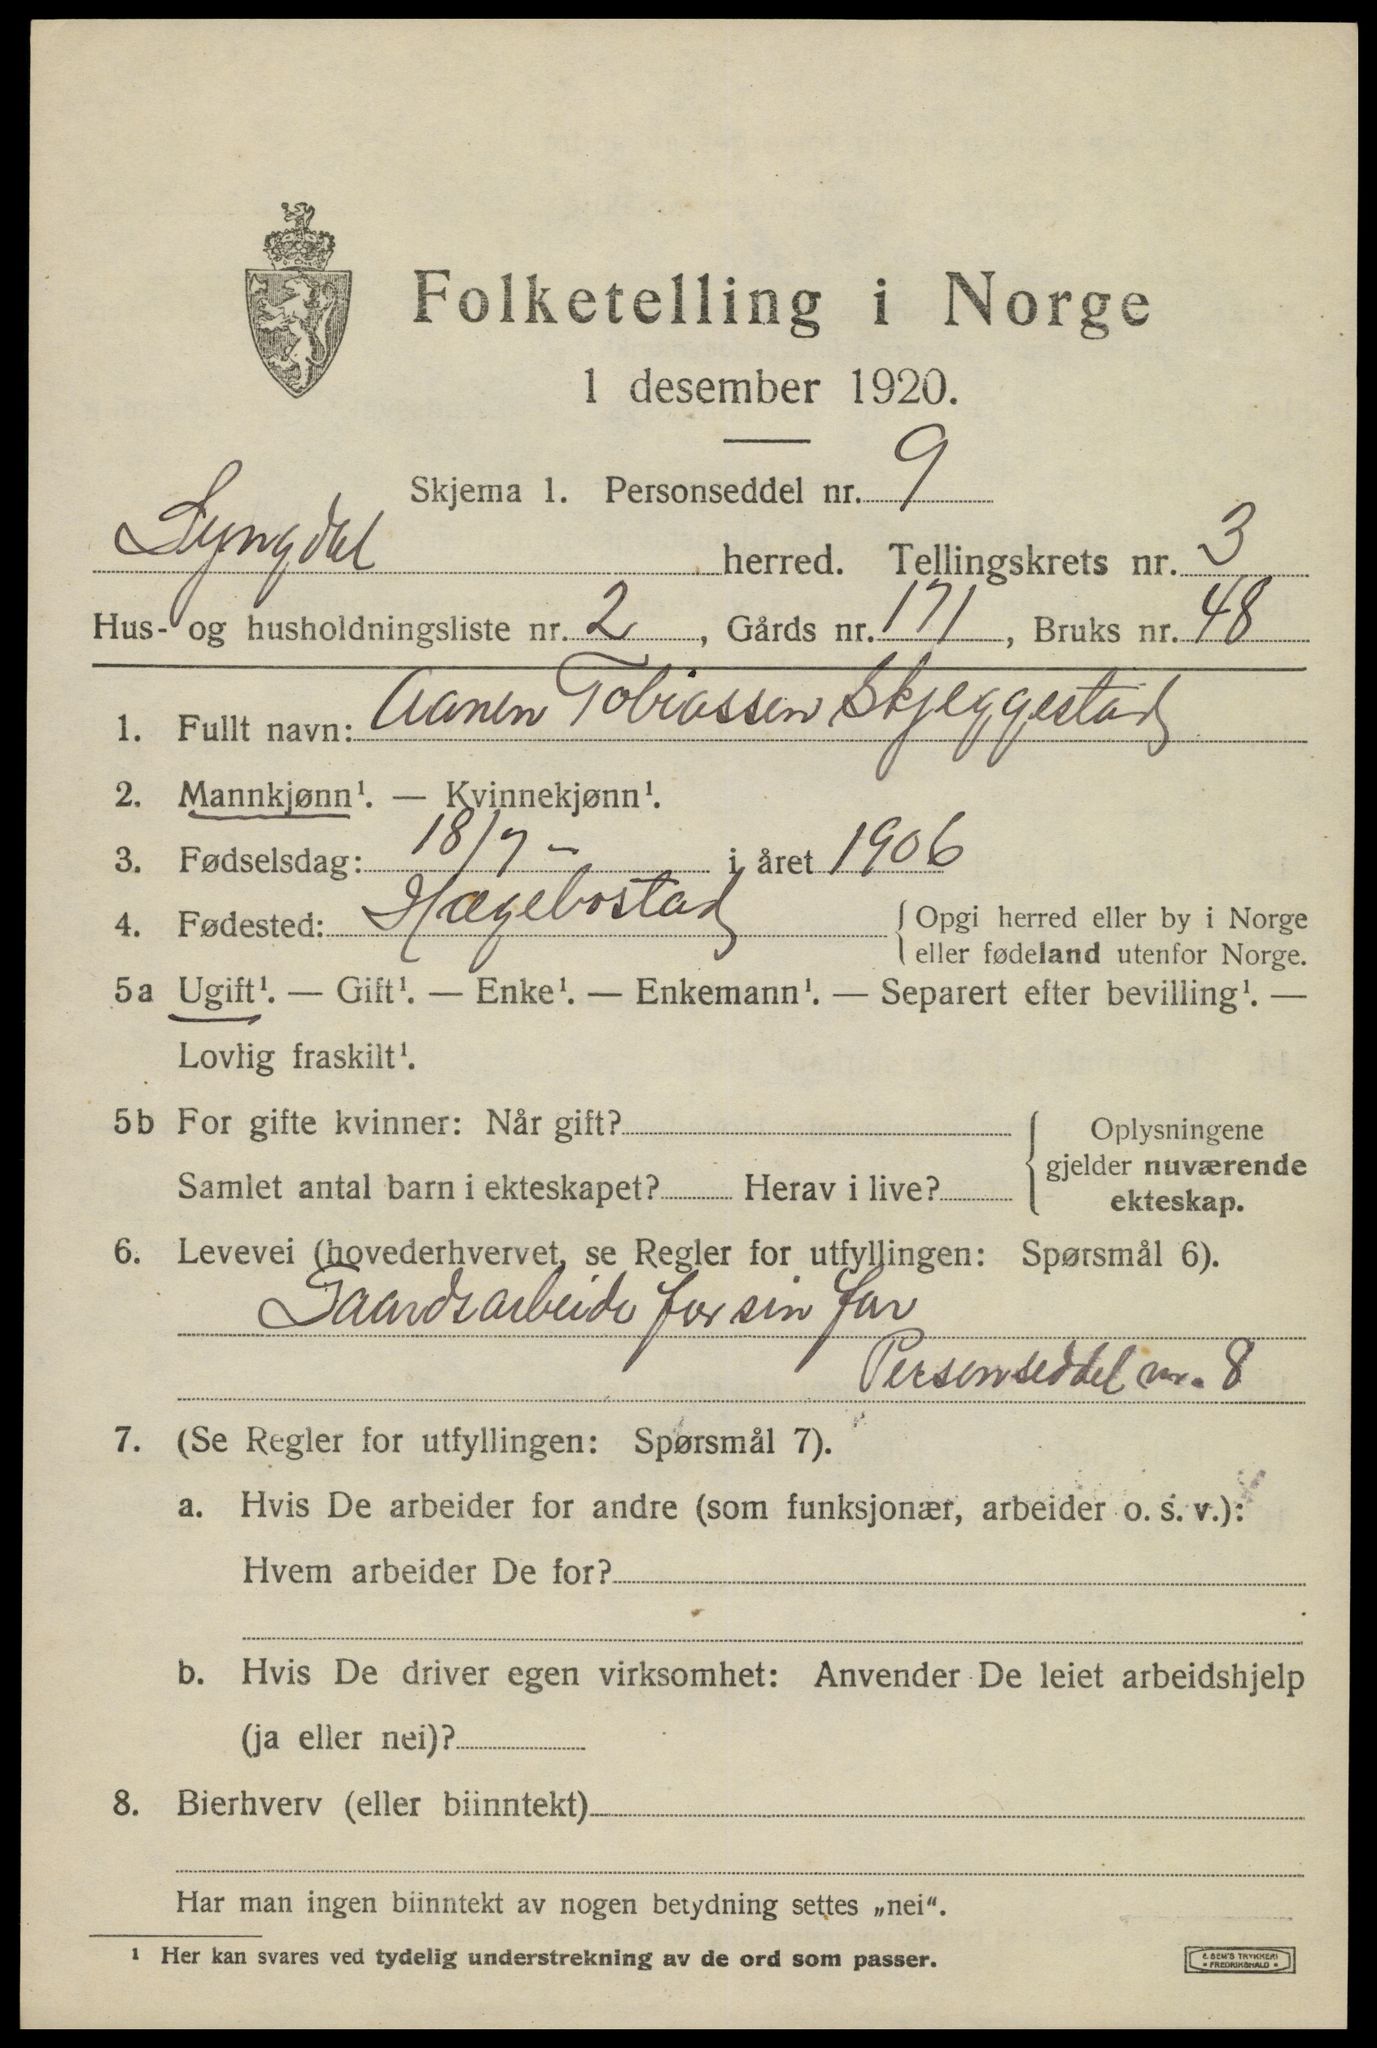 Folketelling i Norge
1 desember 1920.
Skjema 1. Personseddel nr. 9
Lyngdal herred. Tellingskrets nr. 3
Hus- og husholdningsliste nr. 2, Gårds nr. 171, Bruks nr. 48
1. Fullt navn: Aanen Tobiassen Skjeggestad
2. Mannkjønn¹. — Kvinnekjønn¹.
3. Fødselsdag: 18/7 - i året 1906
4. Fødested: Hægebostad { Opgi herred eller by i Norge
eller fødeland utenfor Norge.
5a Ugift¹. — Gift¹. — Enke¹. — Enkemann¹. — Separert efter bevilling¹. —
Lovlig fraskilt¹.
5b For gifte kvinner: Når gift?
Samlet antal barn i ekteskapet? Herav i live?
Oplysningene
gjelder nuværende
ekteskap.
6. Levevei (hovederhvervet, se Regler for utfyllingen: Spørsmål 6).
Gaardsarbeide for sin far
Personseddel nr. 8
7. (Se Regler for utfyllingen: Spørsmål 7).
a. Hvis De arbeider for andre (som funksjonær, arbeider o. s. v.):
Hvem arbeider De for?
b. Hvis De driver egen virksomhet: Anvender De leiet arbeidshjelp
(ja eller nei)?
8. Bierhverv (eller biinntekt)
Har man ingen biinntekt av nogen betydning settes „nei“.
¹ Her kan svares ved tydelig understrekning av de ord som passer.
E. SEM'S TRYKKERI
• FREDRIKSHALD •